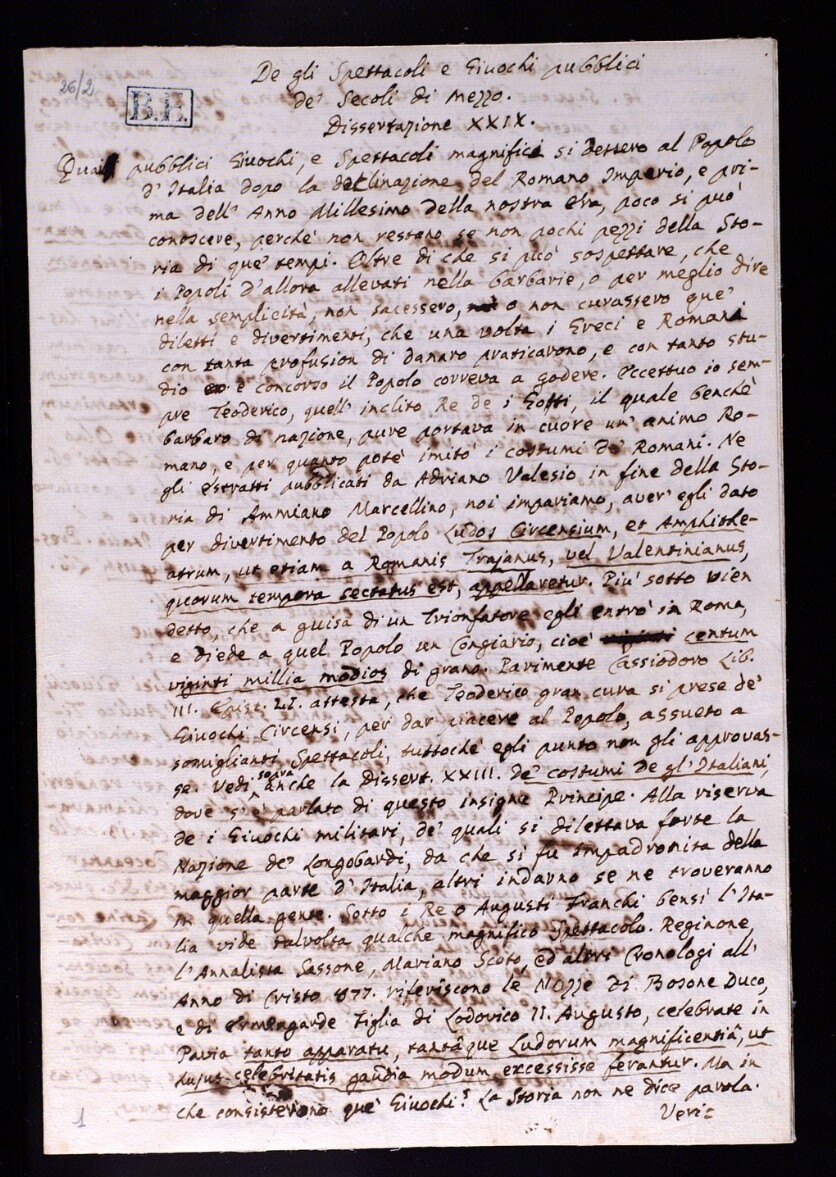 26/2
B.E.
De gli Spettacoli e Giuochi pubblici
de' Secoli di Mezzo.
Dissertazione XXIX.
Quai pubblici Giuochi, e Spettacoli magnifici si dessero al Popolo
d'Italia dopo la declinazione del Romano Imperio, e pri-
ma dell'Anno Millesimo della nostra Era, poco si può
conoscere, perchè non restano se non pochi pezzi della Sto-
ria di que' tempi. Oltre di che si può sospettare, che
i Popoli d'allora allevati nella barbarie, o per meglio dire
nella semplicità, non sapessero, o non curassero que'
diletti e divertimenti, che una volta i Greci e Romani
con tanta profusion di danaro praticarono, e con tanto stu-
dio e concorso il Popolo correva a godere. Eccettuo io sem-
pre Teoderico, quell'inclito Re de i Gotti, il quale benchè
barbaro di nazione, pure portava in cuore un'animo Ro-
mano, e per quanto potè imitò i costumi de' Romani. Ne
gli estratti pubblicati da Adriano Valesio in fine della Sto-
ria di Ammiano Marcellino, noi impariamo, aver'egli dato
per divertimento del Popolo Ludos Circensium, et Amphithe-
atrum, ut etiam a Romanis Trajanus, vel Valentinianus,
quorum tempora sectatus est, appellaretur. Più sotto vien
detto, che a guisa di un Trionfatore egli entrò in Roma,
e diede a quel Popolo un Congiario, cioè centum
viginti millia modios di grano. Parimente Cassiodoro Lib.
III. Epist. LI. attesta, che Teoderico gran cura si prese de'
Giuochi Circensi, per dar piacere al Popolo, assueto a
somiglianti Spettacoli, tuttochè egli punto non gli approvas-
se. Vedi sopra anche la Dissert. XXIII. De' costumi de gl'Italiani,
dove s'è parlato di questo insigne Principe. Alla riserva
de i Giuochi militari, de' quali si dilettava forte la
Nazione de' Longobardi, da che si fu impadronita della
maggior parte d'Italia, altri indarno se ne troveranno
in quella gente. Sotto i Re o Augusti Franchi bensì l'Ita-
lia vide talvolta qualche magnifico Spettacolo. Reginone,
l'Annalista Sassone, Mariano Scoto, ed altri Cronologi all'
Anno di Cristo 877. riferiscono le Nozze di Bosone Duca,
e di Ermengarde Figlia di Lodovico II. Augusto, celebrate in
Pavia tanto apparatu, tantâque Ludorum magnificentiâ, ut
hujus celebritatis gaudia modum excessisse ferantur. Ma in
che consisterono que' Giuochi? La Storia non ne dice parola.
Veric
1